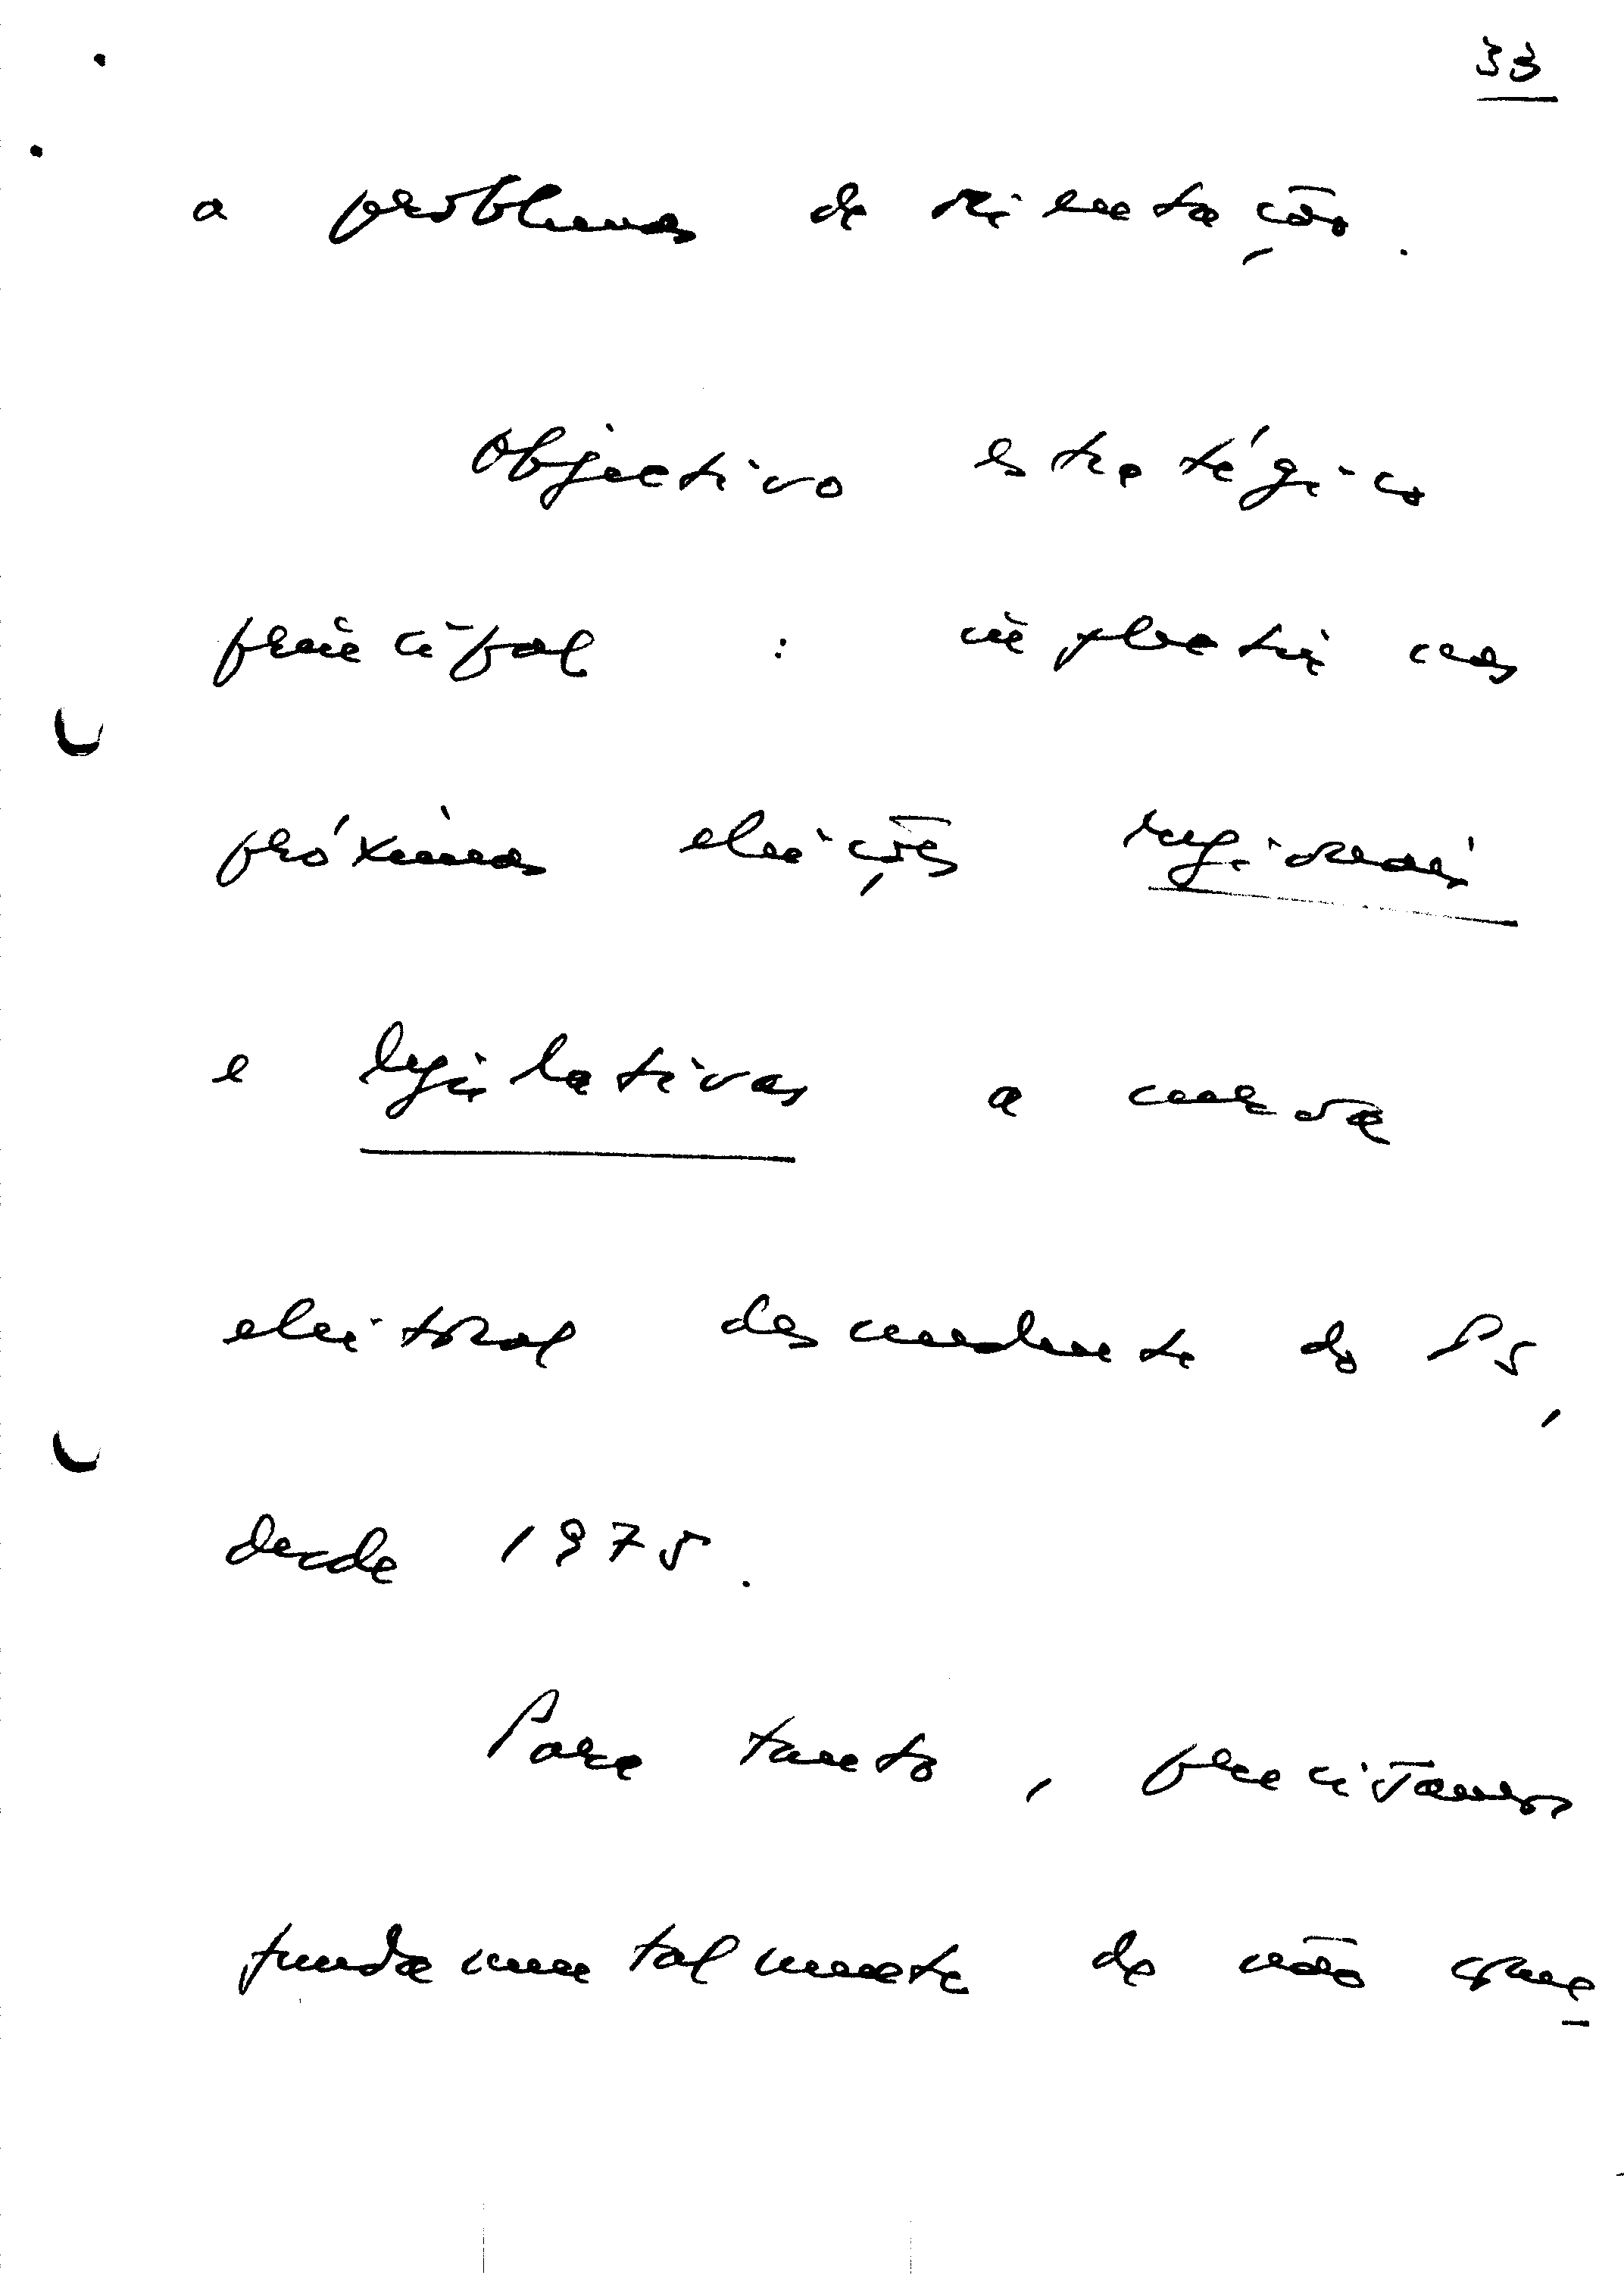 33
a problemas de orientação.
Objectivo estratégico
principal : inflectir nas
próximas eleições regionais
e legislativas a curva
eleitoral descendente do PS,
desde 1975.
Para tanto, precisamos
fundamentalmente de não que